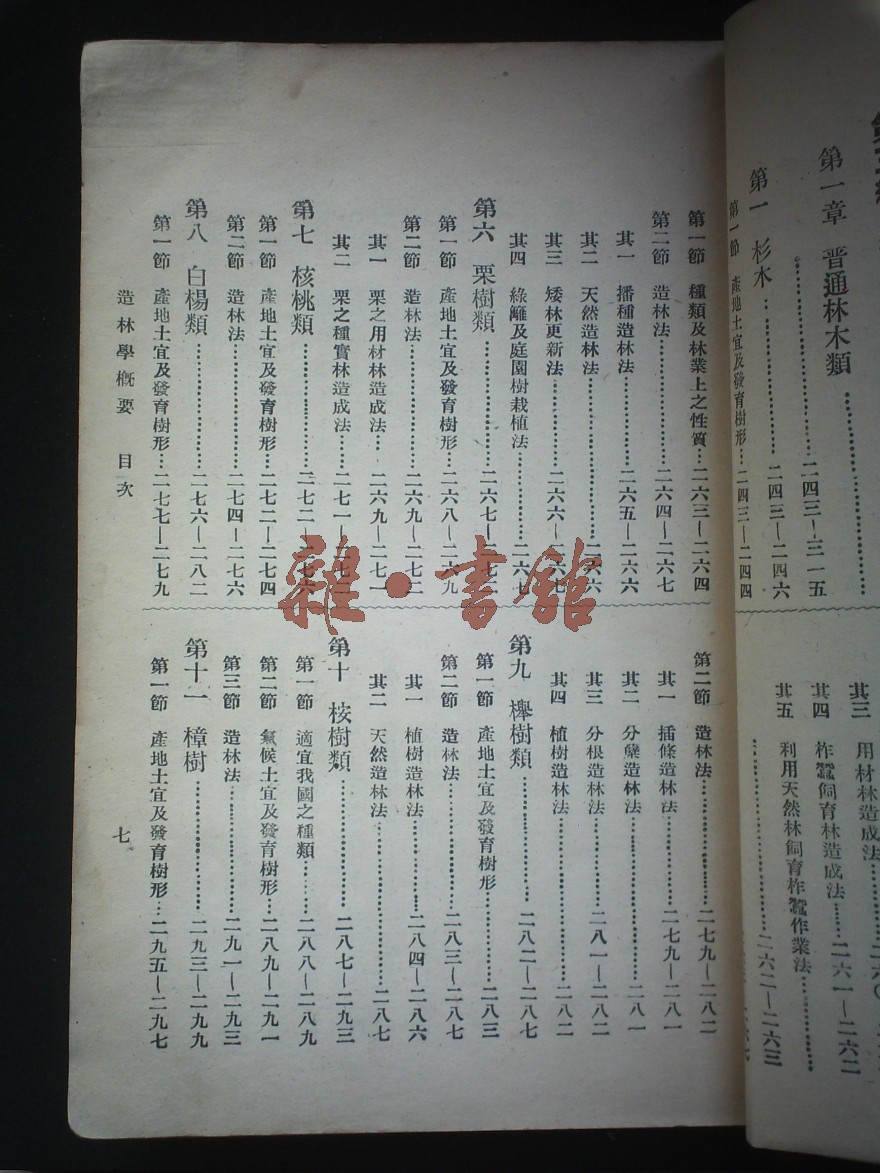 第一章 普通林木類……二四三—三一五
第一 杉木……二四三—二四六
第一節 產地土宜及發育樹形…二四三—二四四
其三 用材林造成法……
其四 柞蠶飼育林造成法……二六一—二六二
其五 利用天然林飼育柞蠶作業法……
……二六二—二六三
第一節 種類及林業上之性質…二六三—二六四
第二節 造林法……二六四—二六七
其一 播種造林法……二六五—二六六
其二 天然造林法……二六六
其三 矮林更新法……二六六—二六七
其四 綠籬及庭園樹栽植法……二六七
第六 栗樹類……二六七—二七二
第一節 產地土宜及發育樹形…二六八—二六九
第二節 造林法……二六九—二七二
其一 栗之用材林造成法…二六九—二七一
其二 栗之種實林造成法……二七一—二七二
第七 核桃類……二七二—二七六
第一節 產地土宜及發育樹形…二七二—二七四
第二節 造林法……二七四—二七六
第八 白楊類……二七六—二八二
第一節 產地土宜及發育樹形…二七七—二七九
第二節 造林法……二七九—二八二
其一 插條造林法……二七九—二八一
其二 分孽造林法……二八一
其三 分根造林法……二八一—二八二
其四 植樹造林法……二八二
第九 櫸樹類……二八二—二八七
第一節 產地土宜及發育樹形……二八三
第二節 造林法……二八三—二八七
其一 植樹造林法……二八四—二八六
其二 天然造林法……二八七
第十 桉樹類……二八七—二九三
第一節 適宜我國之種類……二八八—二八九
第二節 氣候土宜及發育樹形…二八九—二九一
第三節 造林法……二九一—二九三
第十一 樟樹……二九三—二九九
第一節 產地土宜及發育樹形…二九五—二九七
造林學概要 目次
七
雜·書館